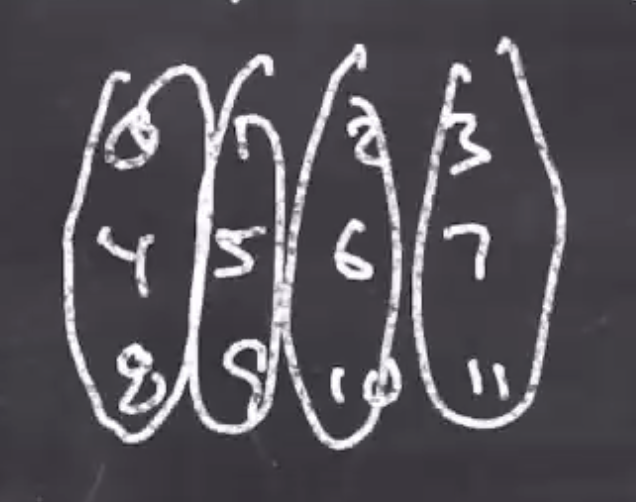 0 1 2 3
4 5 6 7
8 9 10 11